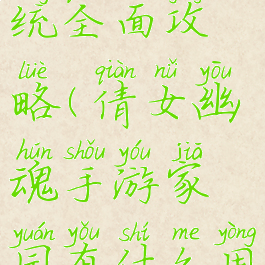 统全面攻
lüè qiàn nǚ yōu
略(倩女幽
hún shǒu yóu jiā
魂手游家
yuán yǒu shí me yòng
园有什么用